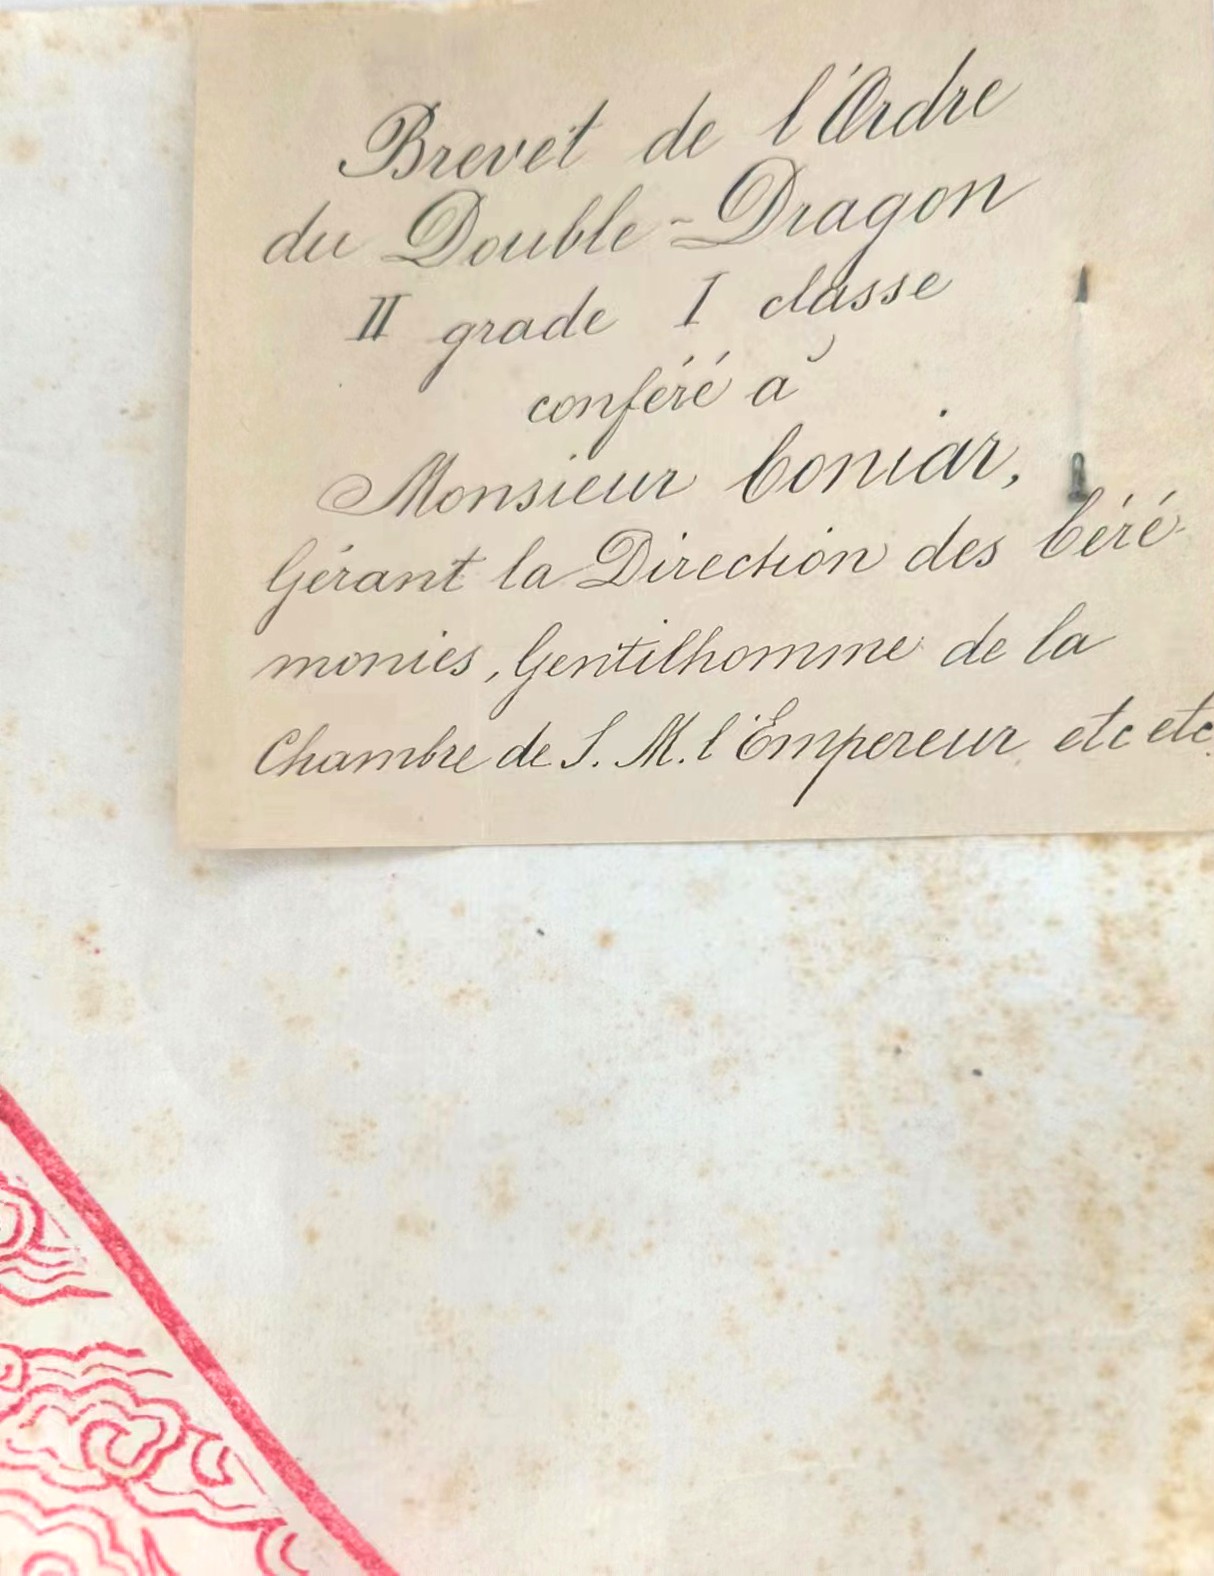 Brevet de l'Ordre
du Double-Dragon
II grade I classe
conféré à
Monsieur Coniar,
Gérant la Direction des Céré-
monies, Gentilhomme de la
Chambre de S. M. l'Empereur etc etc.